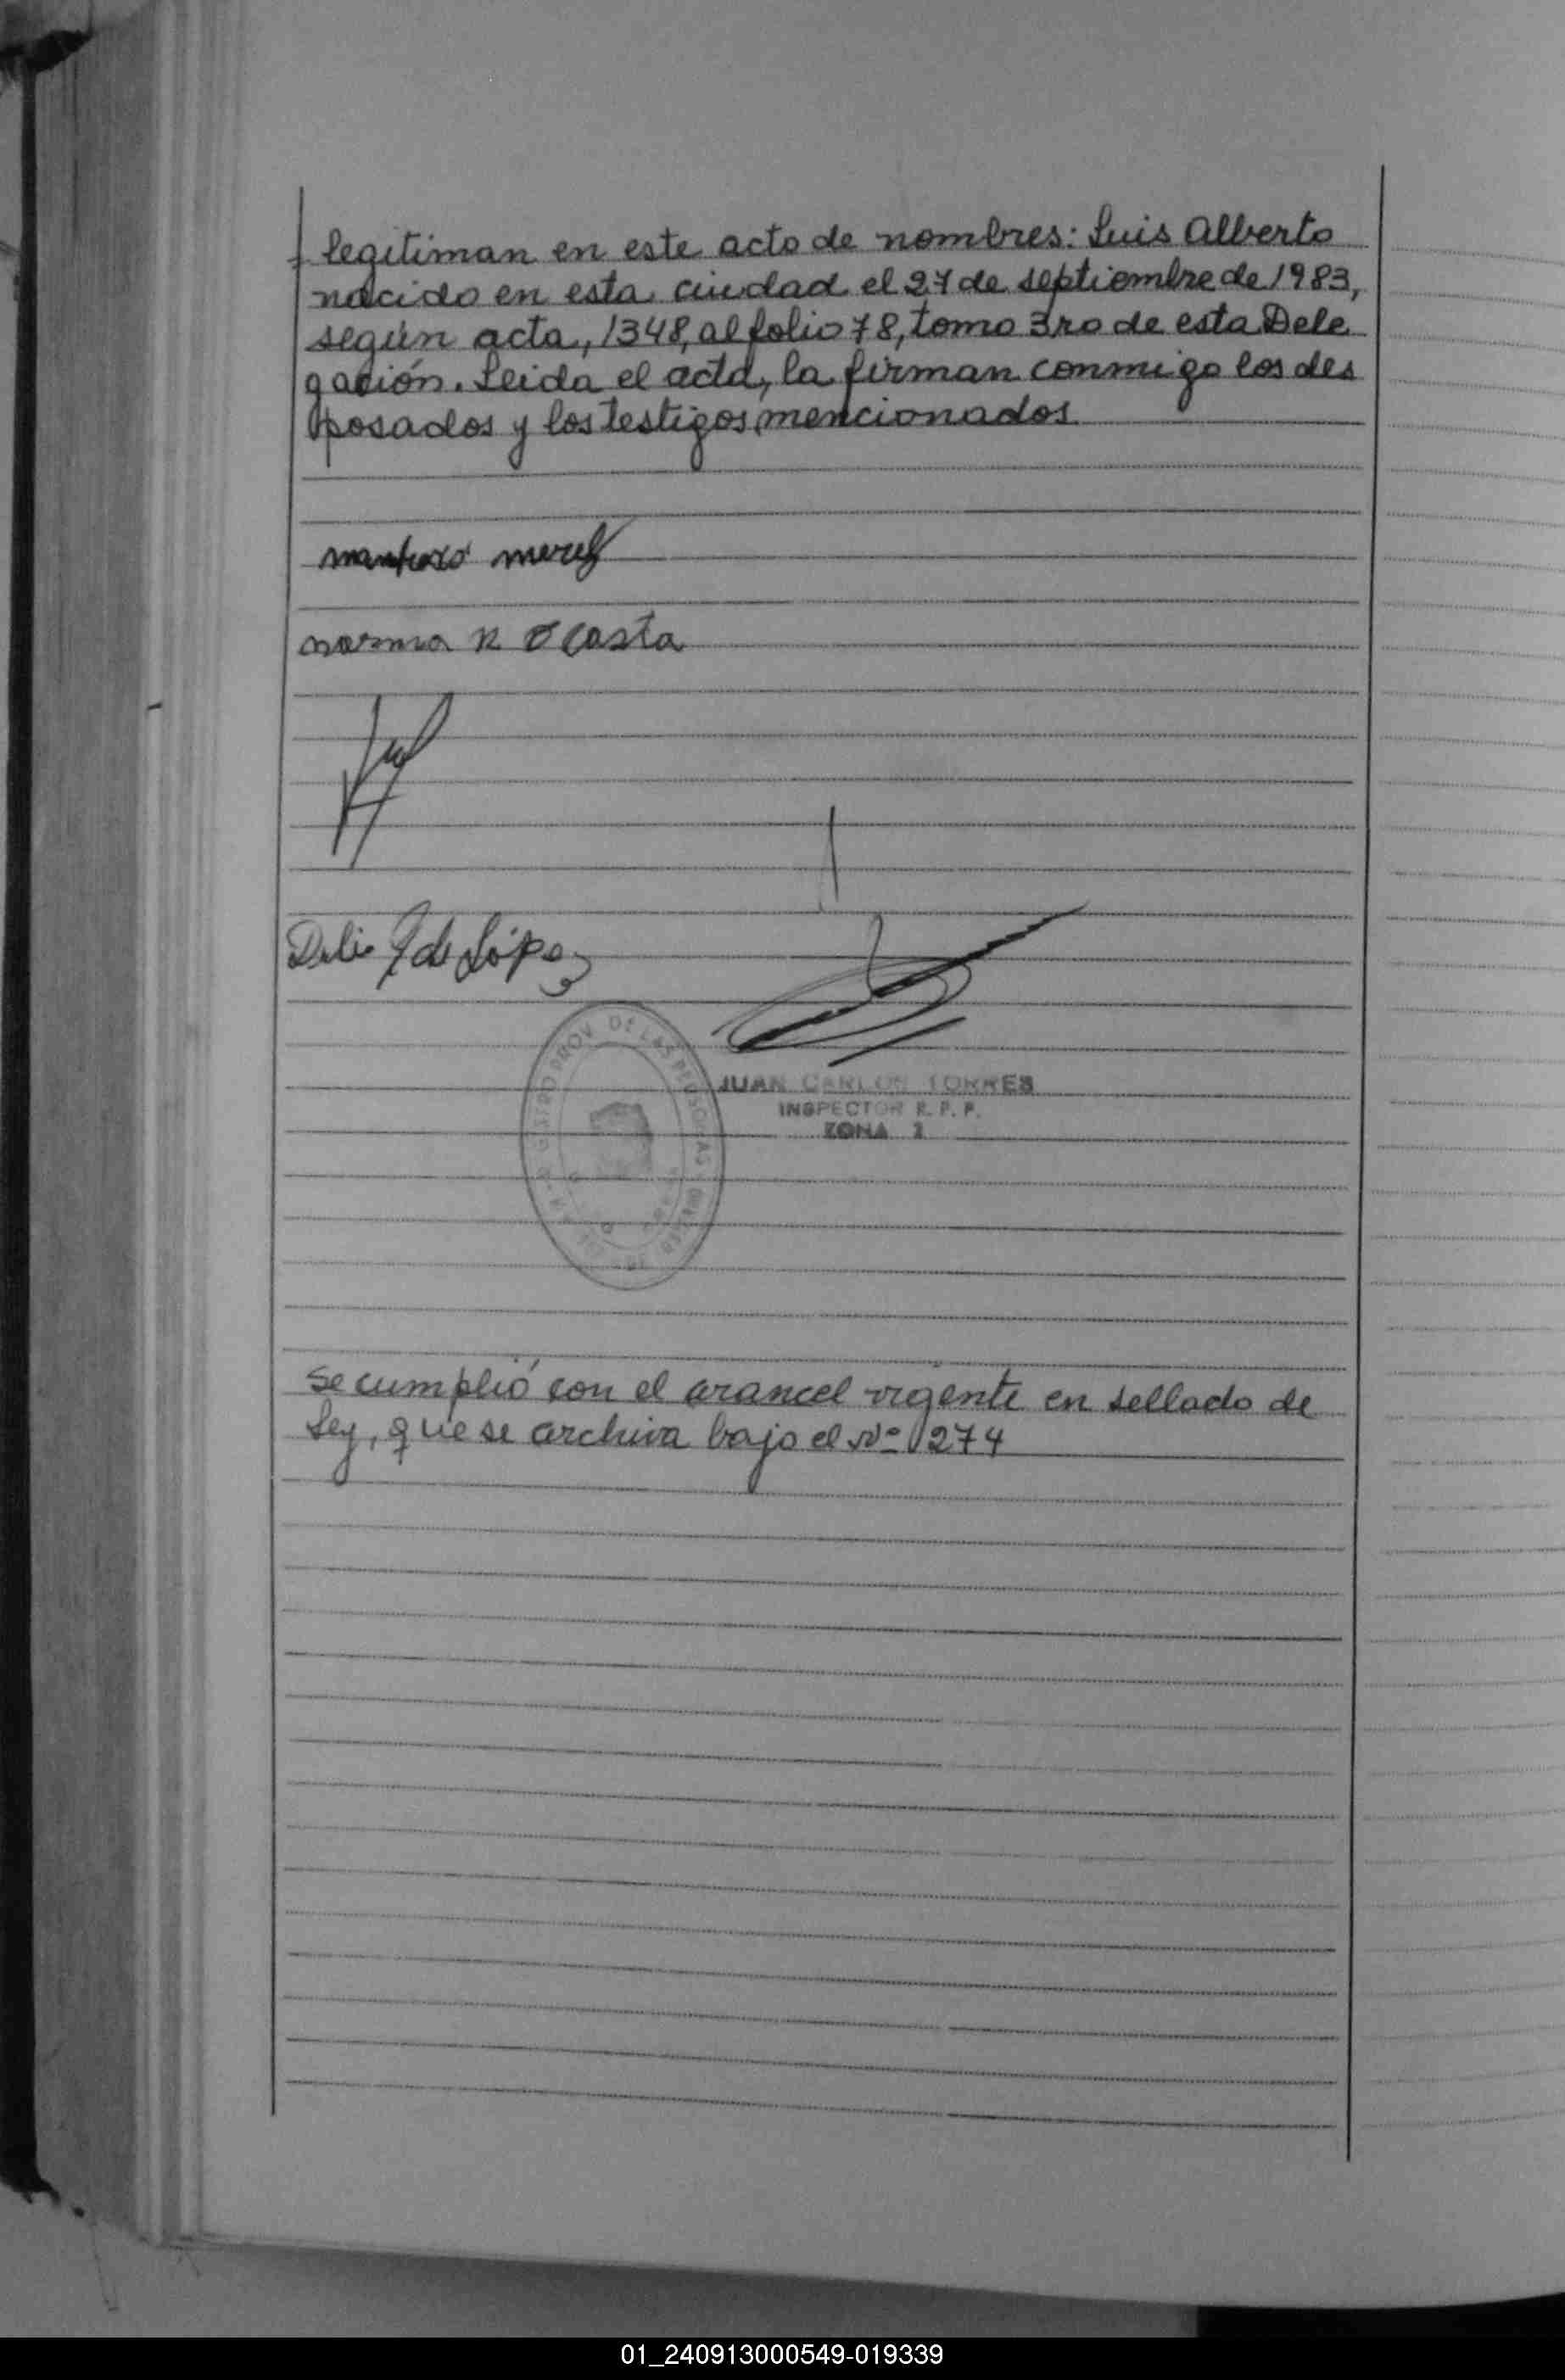 legitiman en este acto de nombres: Luis Alberto
nacido en esta ciudad el 27 de septiembre de 1983,
según acta, 1348, al folio 78, tomo 3ro de esta Dele
gación. Leida el acta, la firman conmigo los des
posados y los testigos mencionados
norma R Acosta
de López
JUAN CARLOS TORRES
INSPECTOR R. P. P.
ZONA 1
REGISTRO PROV. DE LAS PERSONAS
Se cumplió con el arancel vigente en sellado de
Ley, que se archiva bajo el Nº 1274
01_240913000549-019339